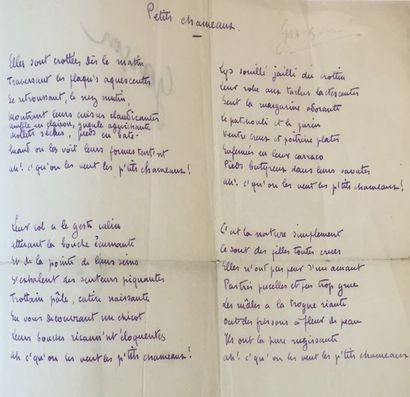 Petits chameaux.
Elles sont crottées dès le matin
Traversant les plaqu's aquescentes
Se retroussant, le nez mutin,
Montrant leurs cuisses
mufle en
mollets séchés, pieds en bats
Quand on les voit leurs formes
ah! c'qu'on les veut les p'tits chameaux!
Leur col a le geste calin
attirant la bouche écumante
Et de la pointe de leurs seins
S'exhalent des senteurs piquantes
Trottin pâle, catin naissante
En vous découvrant un chicot
Leurs bouches ricann'nt éloquentes
ah c'qu'on les veut les p'tits chameaux!
Lys souillé jailli du crottin
Leur robe aux taches lactescentes
Sent la margarine odorante
Le patchouli et le purin
Ventre creux et poitrine plates
Enfermés en leur carraco
Pieds butyreux dans leurs savates
ah! c'qu'on les veut les p'tits chameaux!
C'est la nature simplement
Ce sont des filles toutes crues
Elles n'ont pas peur d'un amant
Pas très pucelles et pas trop grue
Les mâles a la trogne riante
Ont des frissons à fleur de peau
Ils ont la pure rugissante
ah! c'qu'on les veut les p'tits chameaux